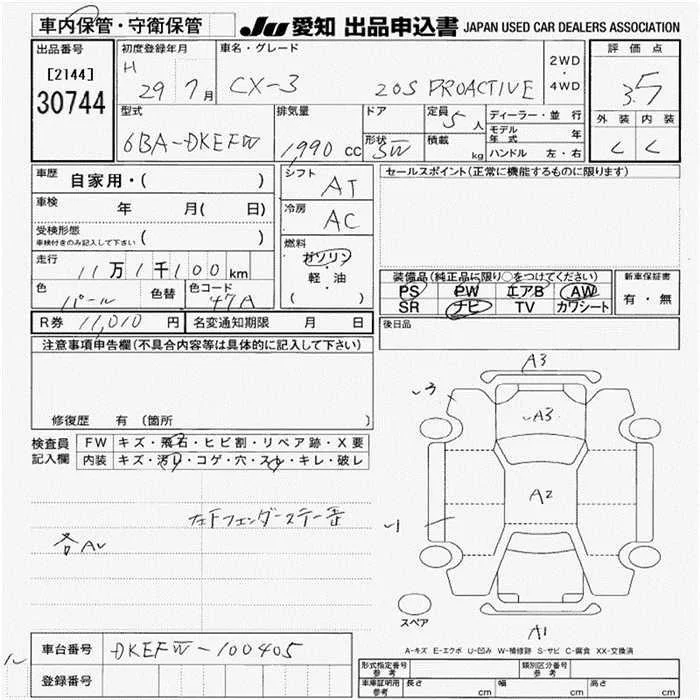 車内保管・守衛保管
JU 愛知 出品申込書 JAPAN USED CAR DEALERS ASSOCIATION
出品番号 初度登録年月 車名・グレード 2WD・4WD 評価点
[2144] H 29 7月 CX-3 20S PROACTIVE 3.5
30744 型式 排気量 ドア 定員 5人 ディーラー・並行 外装 内装
6BA-DKEFW 1,990 cc 形状 SW 積載 kg モデル年式 年 C C
ハンドル 左・右
車歴 自家用・( ) シフト AT セールスポイント(正常に機能するものに限ります)
車検 年 月( 日) 冷房 AC
受検形態 ( )
車検付きのみ記入して下さい
走行 11万1千100km 燃料 ガソリン・軽・油 ( )
装備品(純正品に限り○をつけてください) 新車保証書
色 パール 色替 色コード 47A
PS PW エアB AW 有・無
SR ナビ TV カワシート
R券 11,010円 名変通知期限 月 日 後日品
注意事項申告欄(不具合内容等は具体的に記入して下さい)
修復歴 有(箇所 )
検査員記入欄 FW キズ・飛石・ヒビ割・リペア跡・X要
内装 キズ・汚れ・コゲ・穴・スレ・キレ・破レ
A3
A3
A2
A1
左F フェンダーステー
各AU
スペア
A-キズ E-エクボ U-凹み W-補修跡 S-サビ C-腐食 XX-交換済
車台番号 DKEFW-100405
登録番号
型式指定番号 参考 類別区分番号 参考
車庫証明用 参考 長さ cm 幅 cm 高さ cm